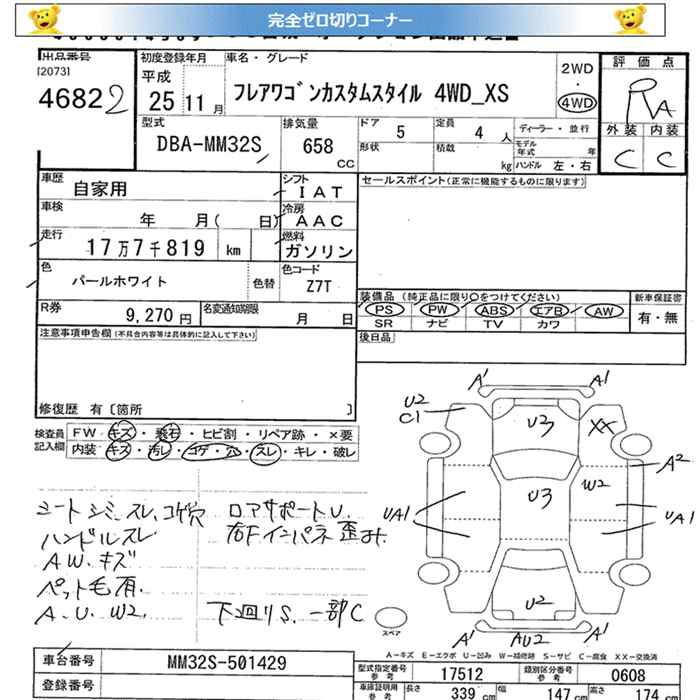 完全ゼロ切りコーナー
出品番号 初度登録年月 車名・グレード 2WD 評価点
[2073] 平成
46822 25 11月 フレアワゴンカスタムスタイル 4WD_XS 4WD RA
型式 排気量 ドア 5 定員 4 人 ディーラー・並行 外装 内装
DBA-MM32S 658 CC 形状 積載 kg モデル年式 年 C C
ハンドル 左・右
車歴 自家用 シフト IAT セールスポイント (正常に機能するものに限ります)
車検 年 月( 日) 冷房 AAC
走行 17万7千819 km 燃料 ガソリン
色 パールホワイト 色替 色コード Z7T
装備品 (純正品に限り○をつけてください) 新車保証書
R券 9,270円 名変通知期限 月 日 PS PW ABS エアB AW 有・無
SR ナビ TV カワ
注意事項申告欄 (不具合内容等は具体的に記入して下さい) 後日品
修復歴 有 [箇所 ]
検査員記入欄 FW キズ・飛石・ヒビ割・リペア跡・×要
内装 キズ・汚レ・コゲ・穴・スレ・キレ・破レ
A1 A1
U2 C1 U3 XX
A2
W2
U3
UA1 UA1
U2
A1 AU2 A1
スペア
シート シミ、スレ、コゲ穴 ロアサポートU.
ハンドルスレ 右Fインパネ歪み.
A W. キズ
ペット毛有.
A. U. W2. 下廻りS. 一部C
A－キズ E－エクボ U－凹み W－補修跡 S－サビ C－腐食 XX－交換済
車台番号 MM32S-501429 型式指定番号 参考 17512 類別区分番号 参考 0608
登録番号 車庫証明用 参考 長さ 339 cm 幅 147 cm 高さ 174 cm